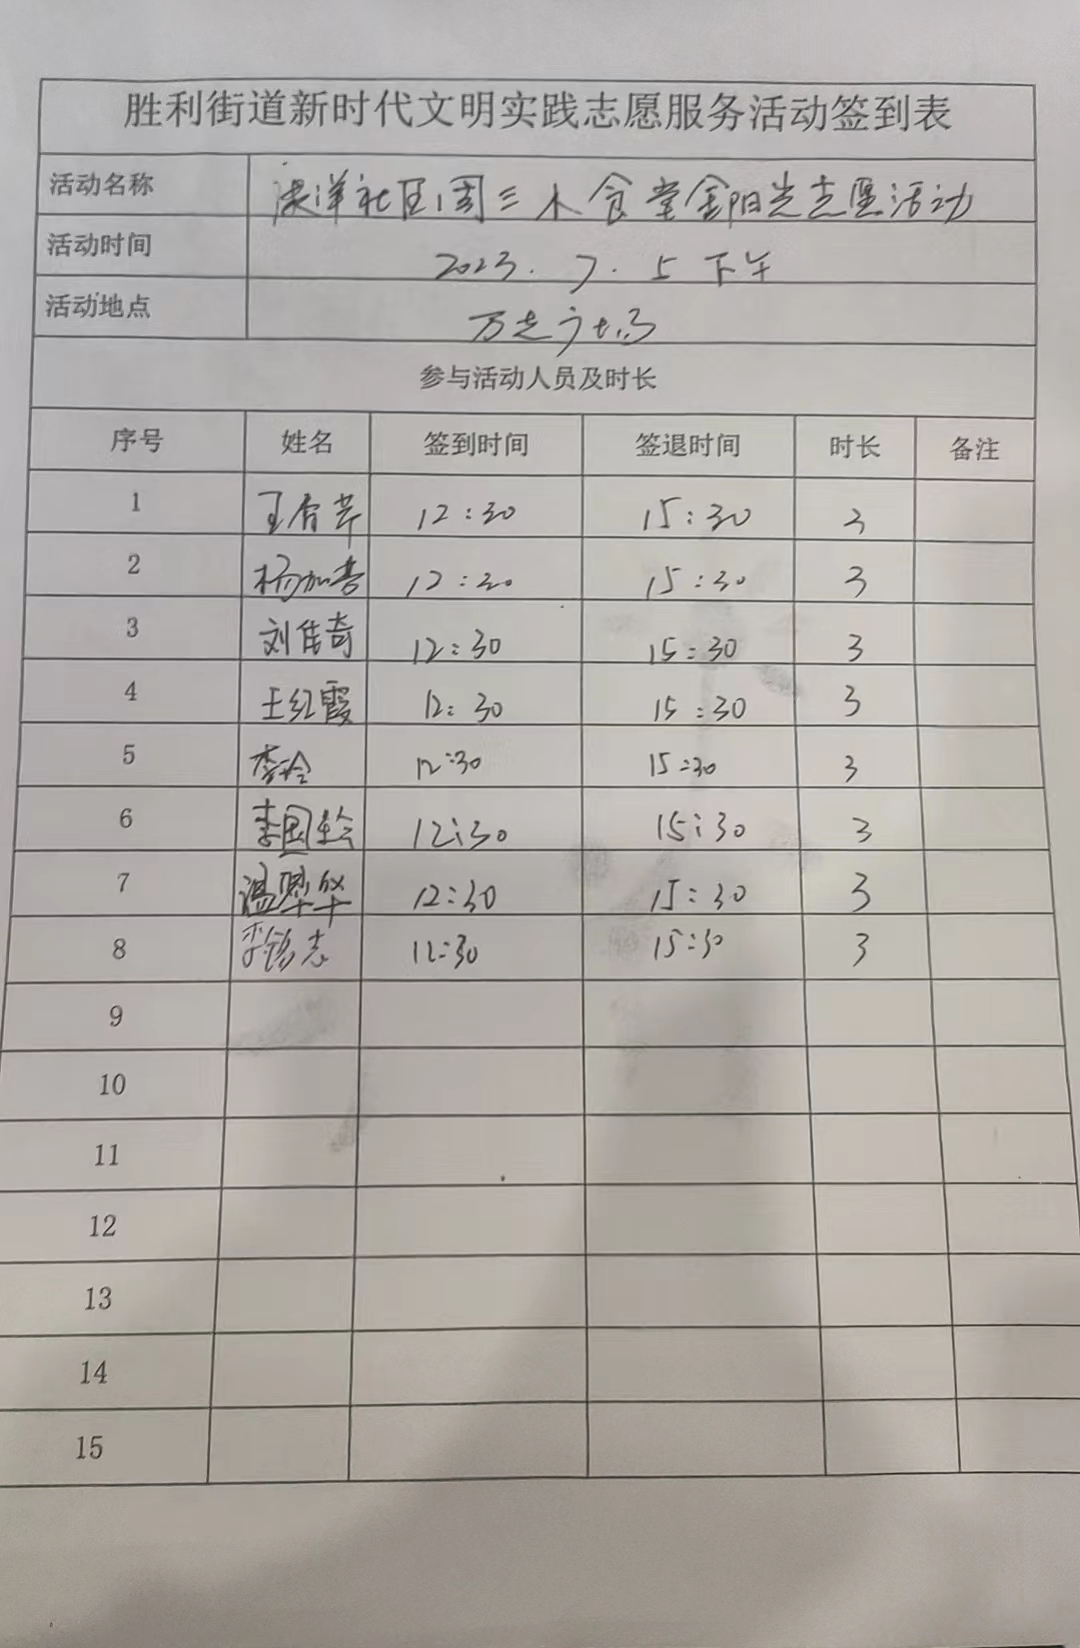 胜利街道新时代文明实践志愿服务活动签到表
活动名称 洪洋社区周三木食堂金阳光志愿活动
活动时间 2023.7.5下午
活动地点 万达广场
参与活动人员及时长
序号 姓名 签到时间 签退时间 时长 备注
1 王香芹 12:30 15:30 3
2 杨加善 12:30 15:30 3
3 刘佳奇 12:30 15:30 3
4 王红霞 12:30 15:30 3
5 李玲 12:30 15:30 3
6 李国 12:30 15:30 3
7 温 华 12:30 15:30 3
8 李 志 12:30 15:30 3
9
10
11
12
13
14
15